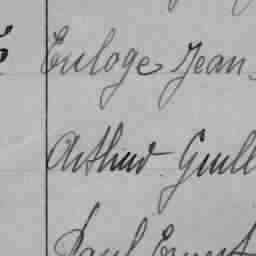 Euloge Jean
Arthur Guill
Paul Ernest